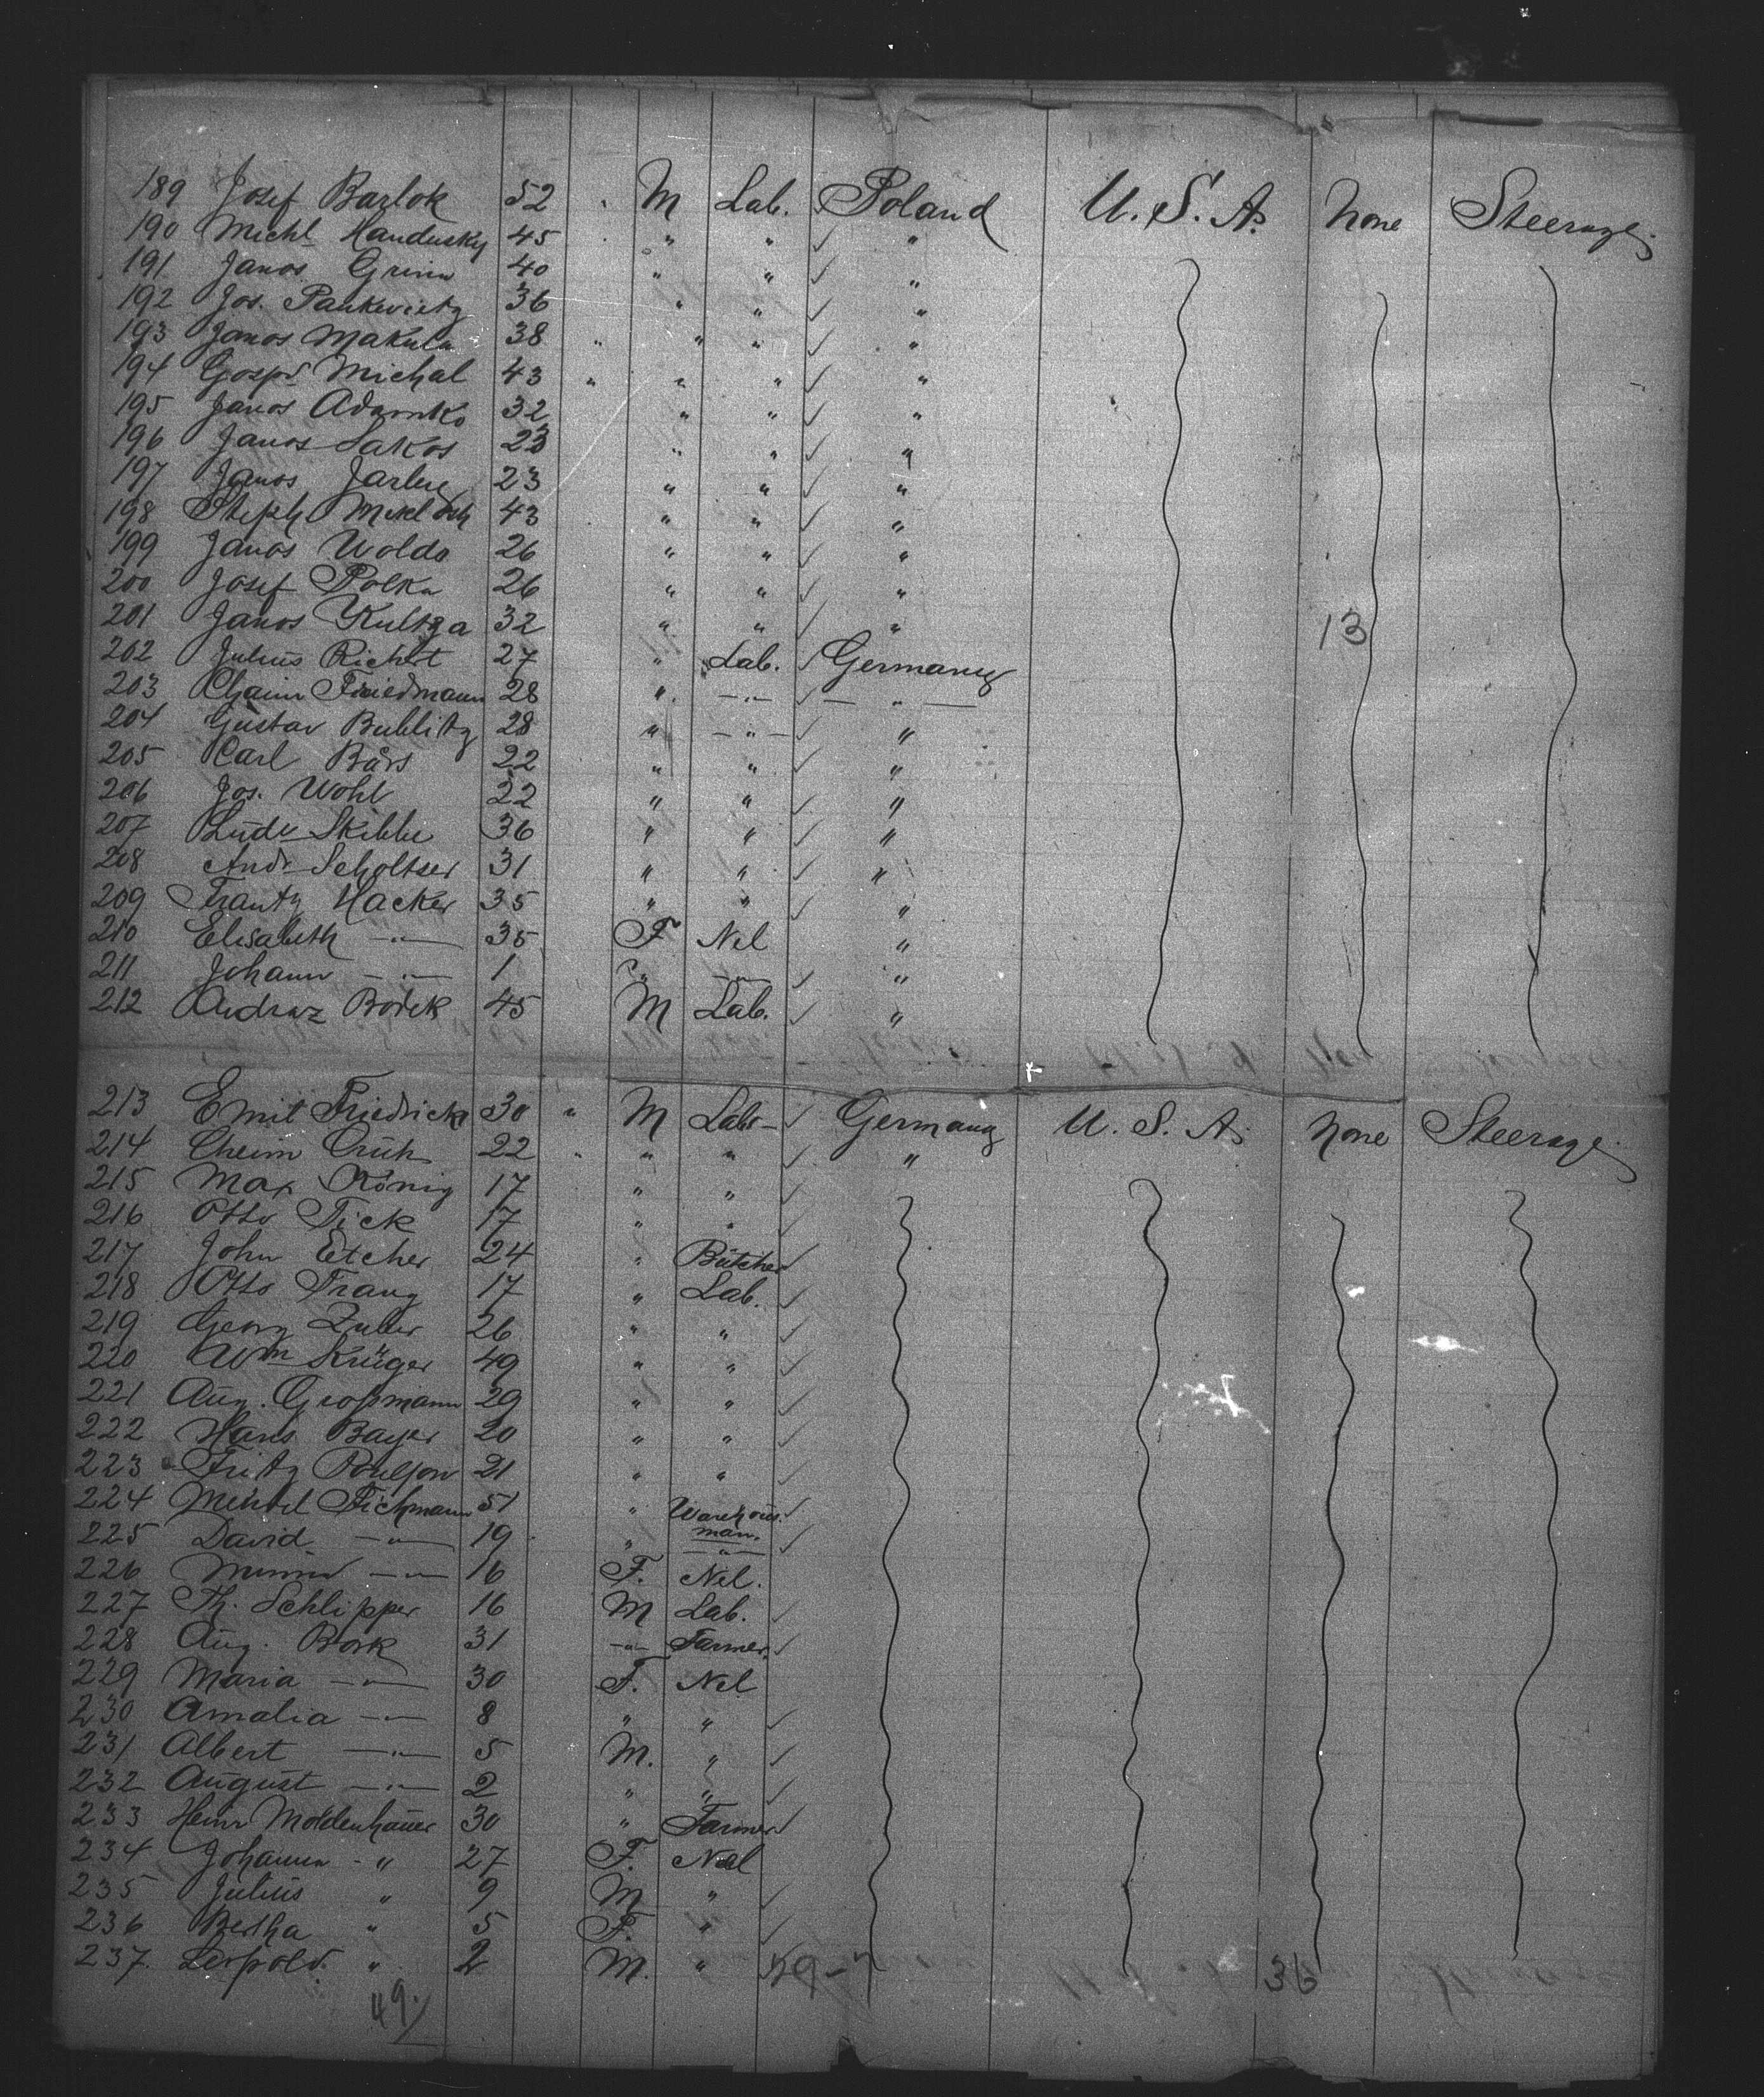 189 Josef Barlok 52 " M Lab. Poland U.S.A. None Steerage
190 Michl Handusky 45 " " " ✓ "
191 Janos Grim 40 " " ✓ "
192 Jos. Pankevietz 36 " " ✓ "
193 Janos Makula 38 " " " ✓ "
194 Gospo Michal 43 " " " ✓ "
195 Janos Adamko 32 " " ✓ "
196 Janos Sakos 23 " " ✓ "
197 Janos 23 " " ✓ "
198 Steph 43 " " ✓ "
199 Janos Woldo 26 " " ✓ "
200 Josef Polka 26 " " ✓ "
201 Janos Kultza 32 " " ✓ " 13
202 Julius Richert 27 " Lab. ✓ Germany
203 Chaim Friedmann 28 " — " — ✓ — " —
204 Gustav Bublitz 28 " — " — ✓ "
205 Carl Bårs 22 " " ✓ "
206 Jos. Wohl 22 " " ✓ "
207 Ludv Skibbe 36 " " ✓ "
208 Andr Scholtser 31 " " ✓ "
209 Frantz Hacker 35 " " ✓ "
210 Elisabeth — " — 35 F Nel "
211 Johann — " — 1 " — " — ✓ "
212 Andraz Bodek 45 M Lab. ✓ "
213 Emil Friedrich 30 " M Lab ✓ Germany U.S.A. None Steerage
214 Cheim 22 " " " ✓ "
215 Max König 17 " " ✓
216 Otto Fick 17 " " ✓
217 John Etcher 24 " Bütcher ✓
218 Otto Franz 17 " Lab. ✓
219 Georg Zuler 26 " " ✓
220 Wm Krüger 49 " " ✓
221 Aug. Großmann 29 " " ✓
222 Hans Bayer 20 " " ✓
223 Fritz Poulson 21 " " ✓
224 Mendel Fichmann 51 " Warehous- ✓
man.
225 David — " — 19 " — " — ✓
226 Minna — " — 16 F. Nel.
227 Th. Schlipper 16 M Lab. ✓
228 Aug. Bork 31 — " — Farmer. ✓
229 Maria — " — 30 F. Nel
230 Amalia — " — 8 " " ✓
231 Albert — " — 5 M. " ✓
232 August — " — 2 " " ✓
233 Heinr Moldenhauer 30 " Farmer ✓
234 Johanna - " 27 F. Nel
235 Julius " 9 M " ✓
236 Bertha " 5 F. " ✓
237. Leopold " 2 M. " 36
49